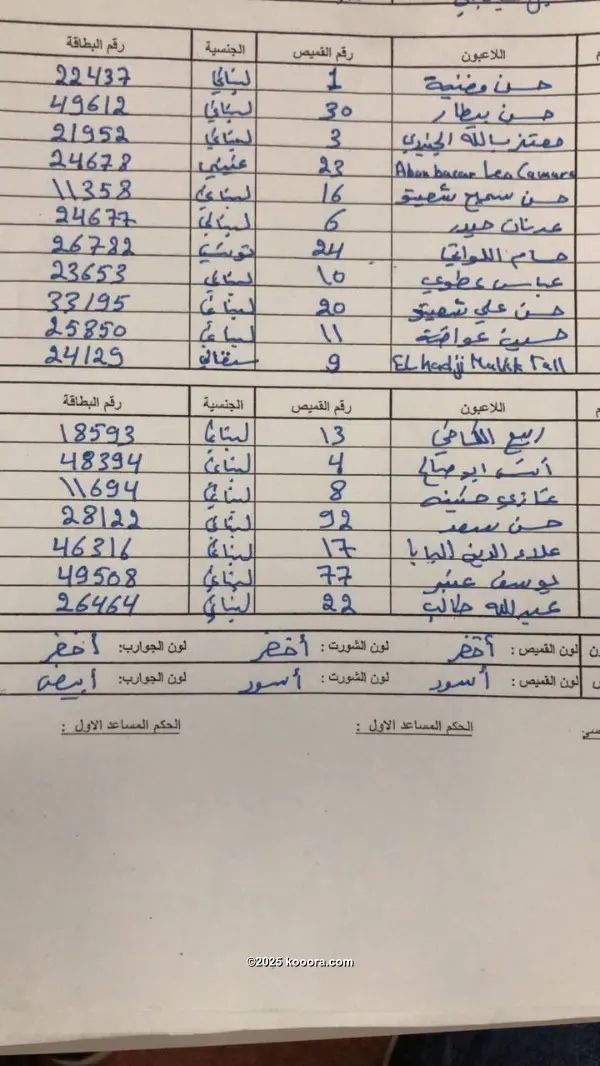 اللاعبون رقم القميص الجنسية رقم البطاقة
حسن مغنية 1 لبناني 22437
حسن بيطار 30 لبناني 49612
معتز بالله الجنيدي 3 لبناني 21952
Aboubacar Leo Camara 23 غيني 24678
حسن سميح شعيتو 16 لبناني 11358
عدنان حيدر 6 لبناني 24677
حسام اللواتي 24 تونسي 26782
عباس عطوي 10 لبناني 23653
حسن علي شعيتو 20 لبناني 33195
حسين عواضة 11 لبناني 25850
EL hadji Malick Tall 9 سنغالي 24129
اللاعبون رقم القميص الجنسية رقم البطاقة
ربيع الكاخي 13 لبناني 18593
أنس ابو صالح 4 لبناني 48394
غازي حنينه 8 لبناني 11694
حسن سعد 92 لبناني 28122
علاء الدين البابا 17 لبناني 46316
يوسف عنبر 77 لبناني 49508
عبدالله طالب 22 لبناني 26464
لون القميص : أخضر لون الشورت : أخضر لون الجوارب: أخضر
لون القميص : أسود لون الشورت : أسود لون الجوارب: أبيض
الحكم المساعد الاول : الحكم المساعد الاول :
©2025 kooora.com